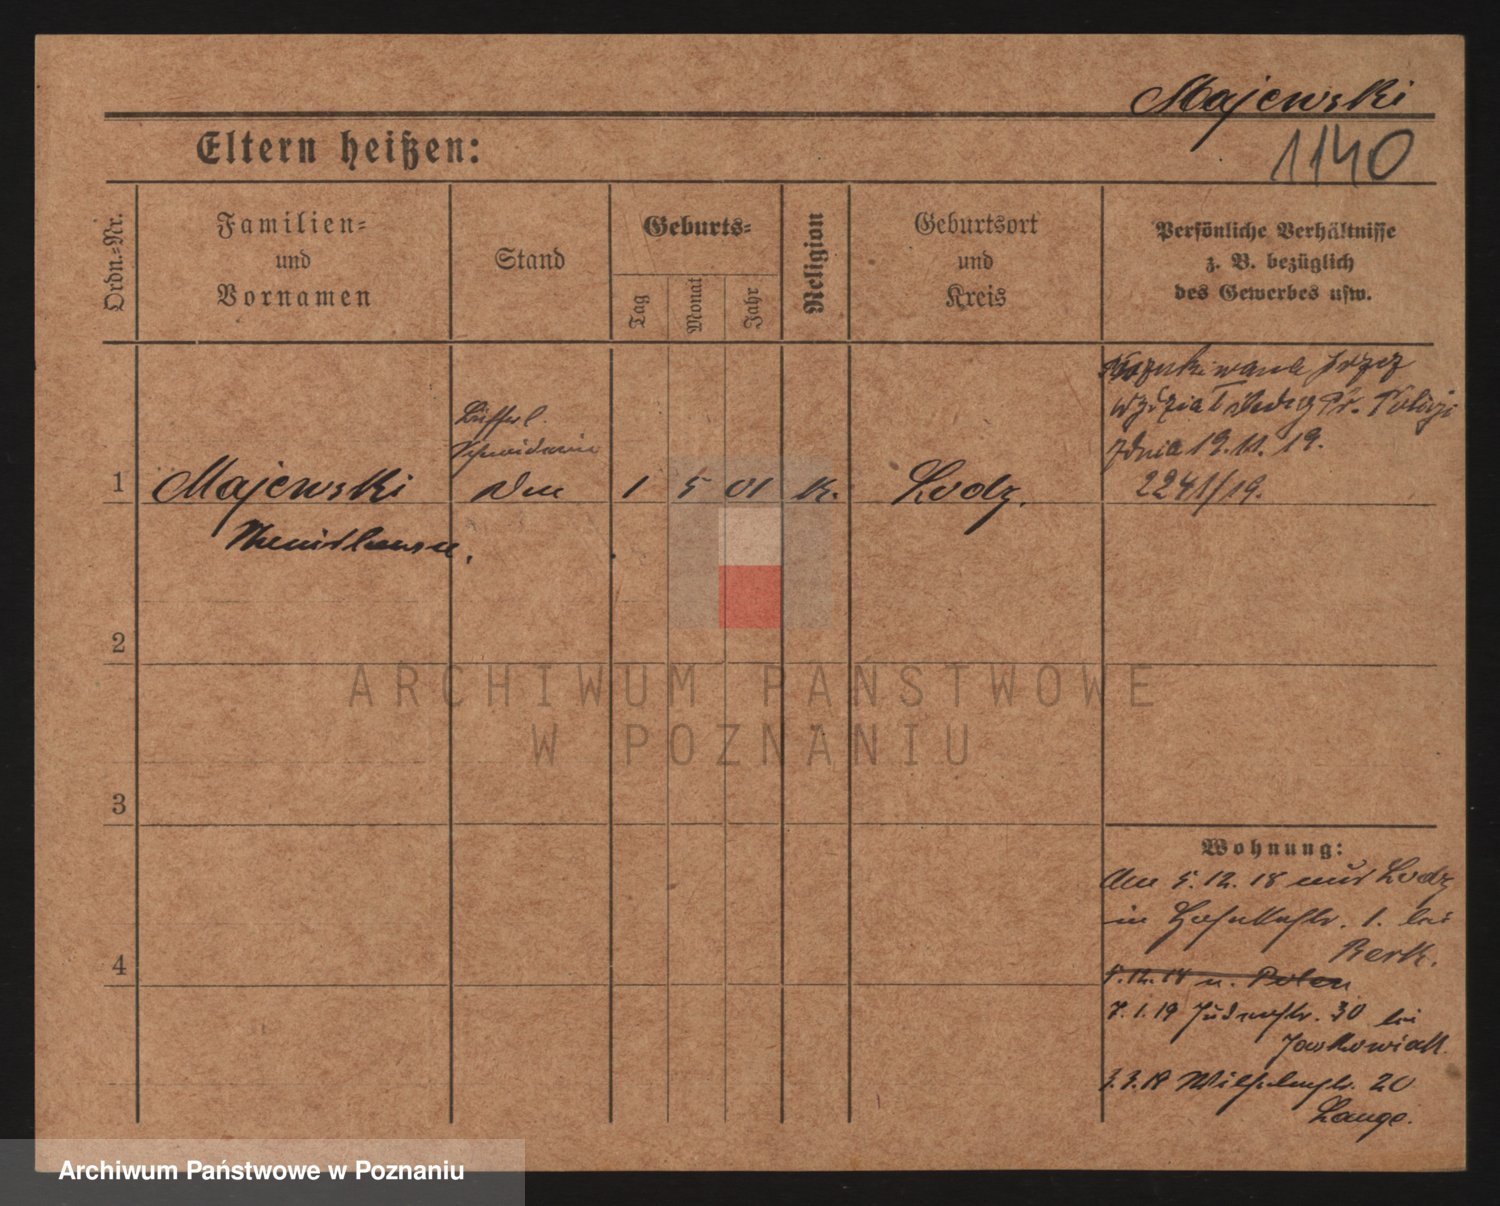 Majewski
1140
Eltern heißen:
Ordn.-Nr.
Familien-
und
Vornamen
Stand
Geburts-
Tag
Monat
Jahr
Religion
Geburtsort
und
Kreis
Persönliche Verhältnisse
z. B. bezüglich
des Gewerbes usw.
Poszukiwana przez
Wydział śledczy Pr. Policji
z dnia 19. 11. 19.
2241/19.
1
Majewski
Stanislawa.
1
5
01
K.
Lodz.
2
3
4
Wohnung:
Am 5. 12. 18 aus Lodz
in 1. bei
Berk.
5.12.18 u. Polen
7. 1. 19 Judenstr. 30 bei
Jackowiak
3.3.19 Wilhelmstr. 20
Lange.
ARCHIWUM PAŃSTWOWE
W POZNANIU
Archiwum Państwowe w Poznaniu